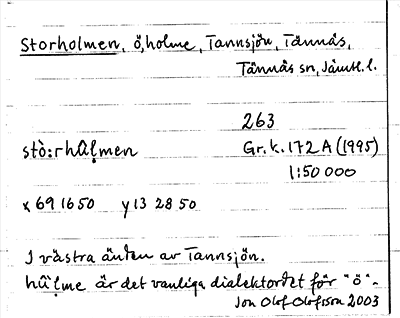 Storholmen, ö, holme, Tannsjön, Tännäs,
Tännäs sn, Jämtl. l.
263
stò:rhɑ̂ḷmen Gr.k. 172 A (1995)
1:50 000
x 69 16 50 y 13 28 50
I västra änden av Tannsjön.
hɑ̂ḷme är det vanliga dialektordet för "ö".
Jon Olof Olofsson 2003